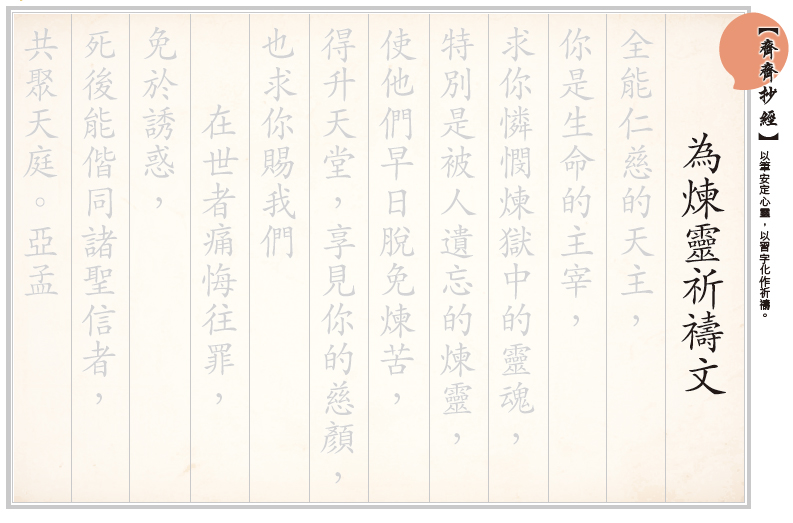 【齊齊抄經】 以筆安定心靈，以習字化作祈禱。
為煉靈祈禱文
全能仁慈的天主，
你是生命的主宰，
求你憐憫煉獄中的靈魂，
特別是被人遺忘的煉靈，
使他們早日脫免煉苦，
得升天堂，享見你的慈顏，
也求你賜我們
在世者痛悔往罪，
免於誘惑，
死後能偕同諸聖信者，
共聚天庭。亞孟